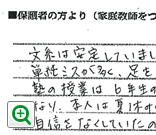 ■保護者の方より（家庭教師をつ
文系は安定していまし
単純ミスが多く、足を
塾の授業は6年生の
なり、本人は夏休み
自信をなくしていたの